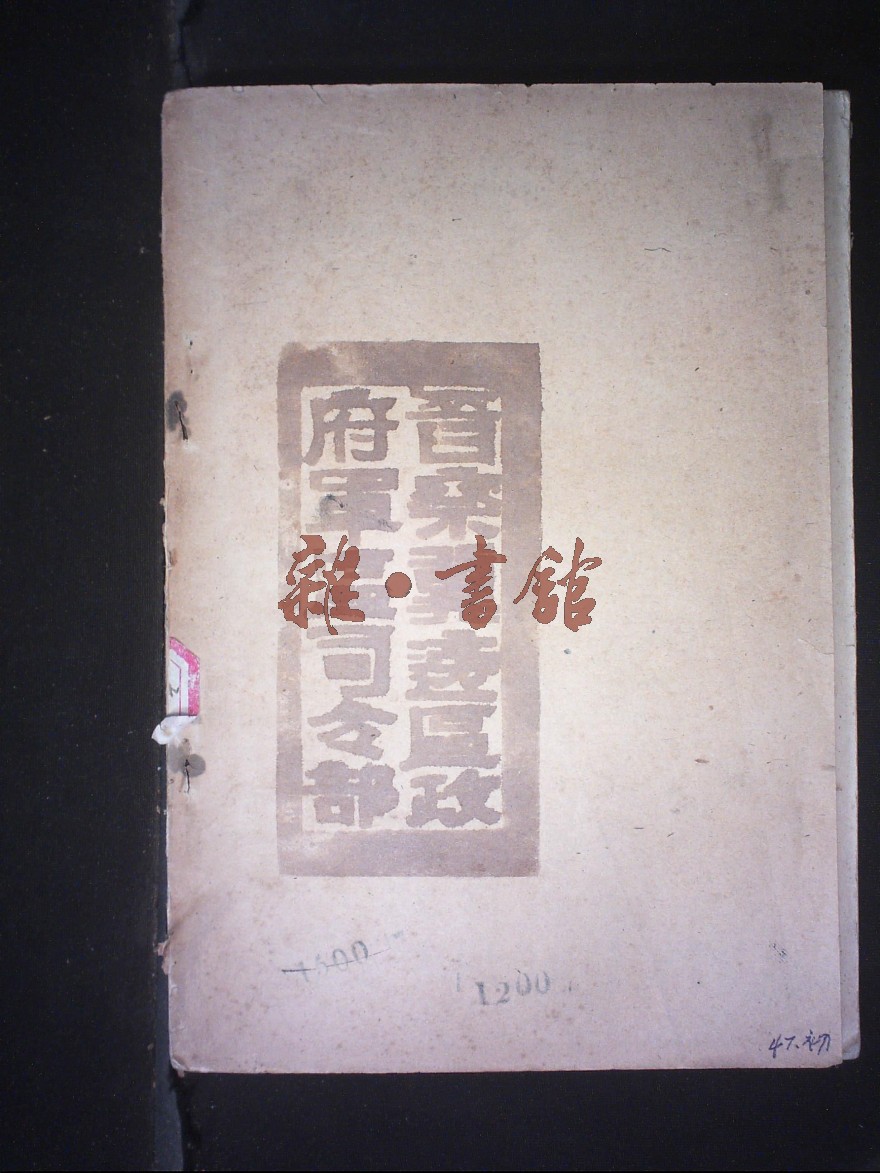 晉察冀邊區政
府軍區司令部
雜·書館
1500
1200
47.初